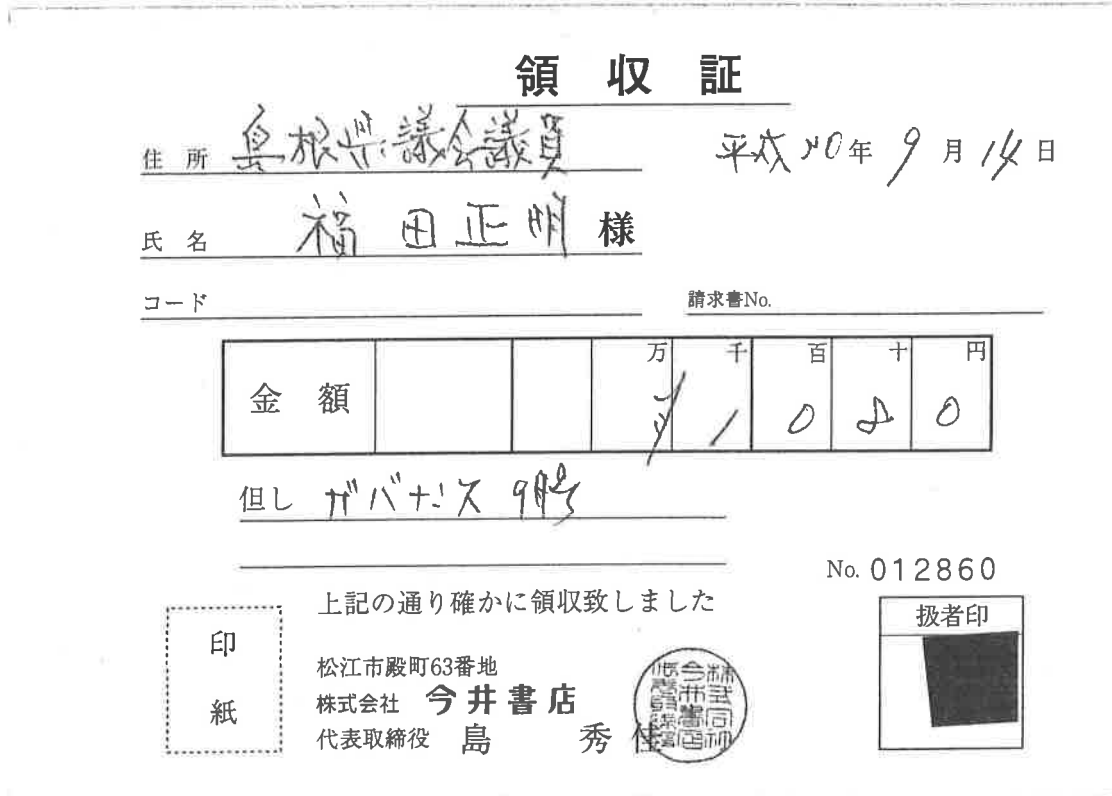 領収証
住所 島根県議会議員
平成20年9月14日
氏名 福田正明様
コード
請求書No.
金額 万 千 百 十 円
¥1080
但し ガバナンス 9月号
No.012860
上記の通り確かに領収致しました
印紙
扱者印
松江市殿町63番地
株式会社 今井書店
代表取締役 島 秀佳